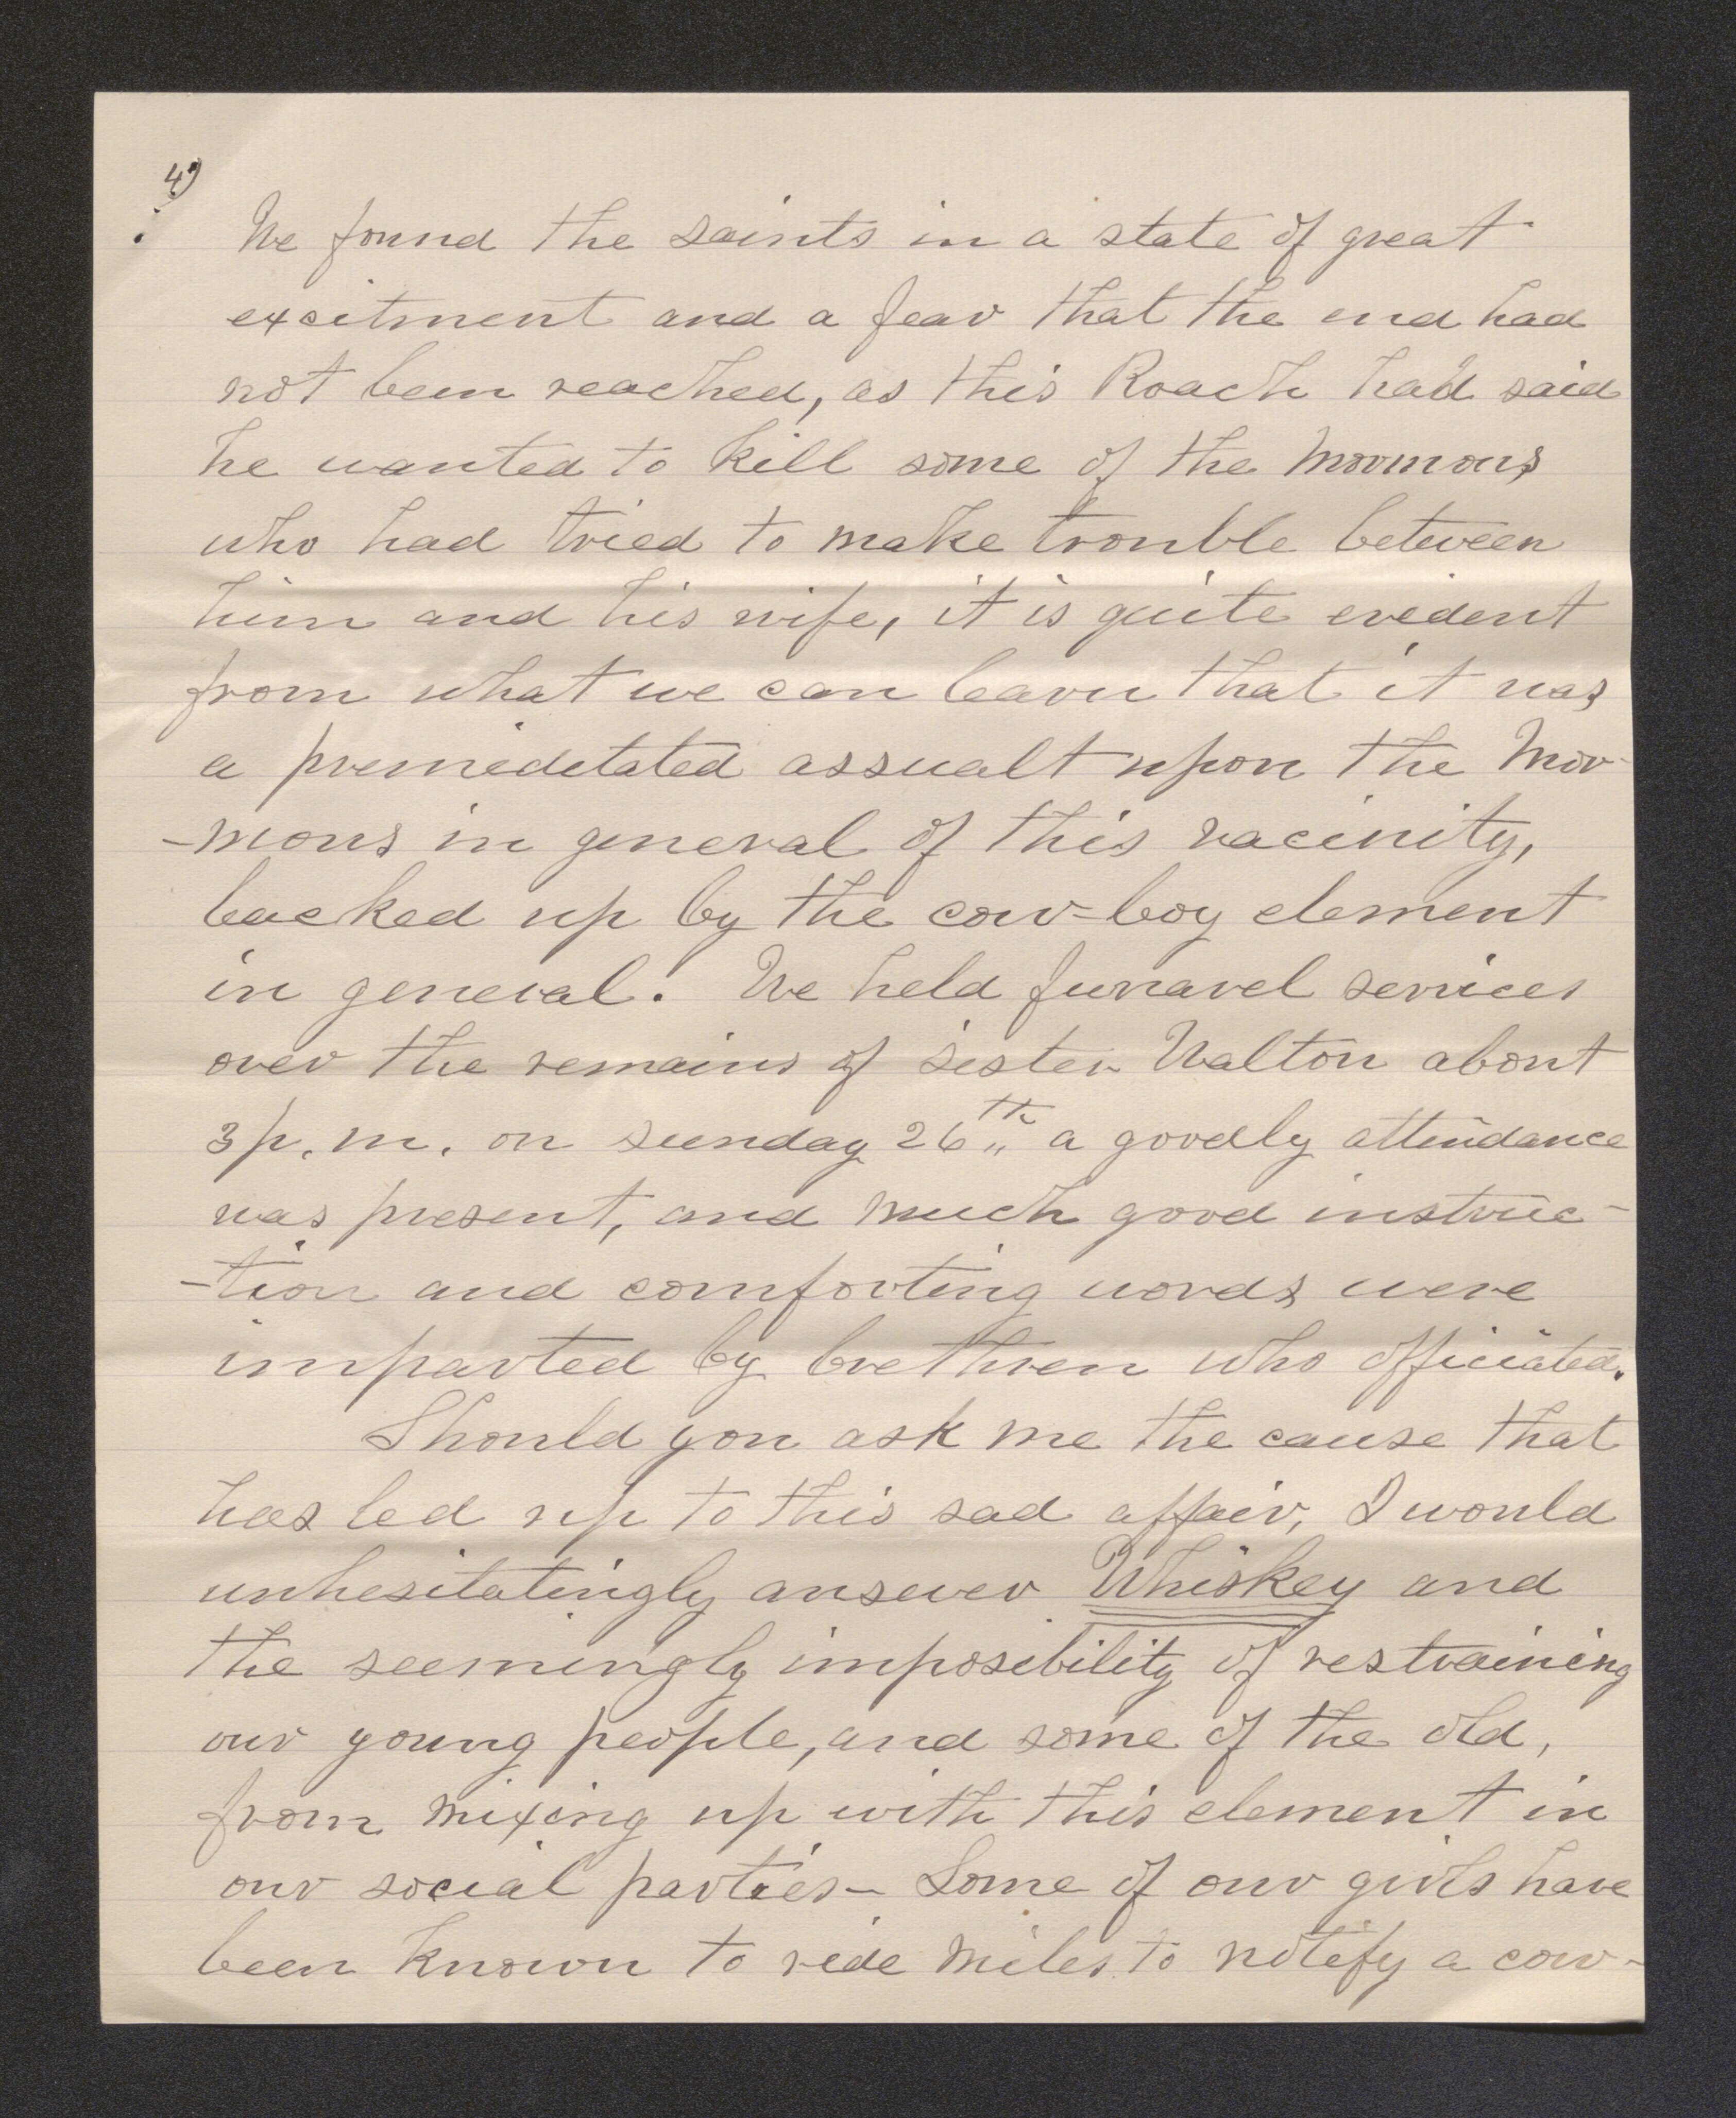 4)
We found the saints in a state of great
excitment and a fear that the end had
not been reached, as this Roach had said
he wanted to kill some of the Mormons
who had tried to make trouble between
him and his wife, it is quite evident
from what we can learn that it was
a premeditated assualt upon the Mor-
-mons in general of this vacinity,
backed up by the cow-boy element
in general. We held funaral services
over the remains of sister Walton about
3 p. m. on sunday 26th a goodly attendance
was present, and much good instruc-
-tion and comforting words were
imparted by brethren who officiated.
Should you ask me the cause that
has led up to this sad affair, I would
unhesitatingly answer Whiskey and
the seemingly imposibility of restraining
our young people, and some of the old,
from mixing up with this element in
our social parties- Some of our girls have
been known to ride miles to notify a cow-